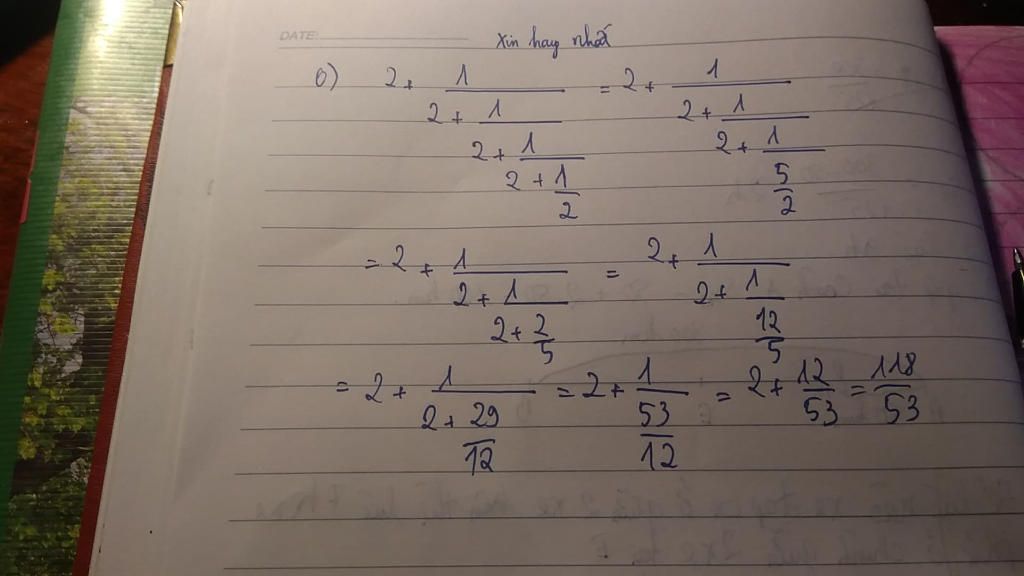 DATE:
Xin hay nhất
b) 2 + 1/(2 + 1/(2 + 1/(2 + 1/2))) = 2 + 1/(2 + 1/(2 + 1/(5/2)))
= 2 + 1/(2 + 1/(2 + 2/5)) = 2 + 1/(2 + 1/(12/5))
= 2 + 1/(2 + 29/12) = 2 + 1/(53/12) = 2 + 12/53 = 118/53